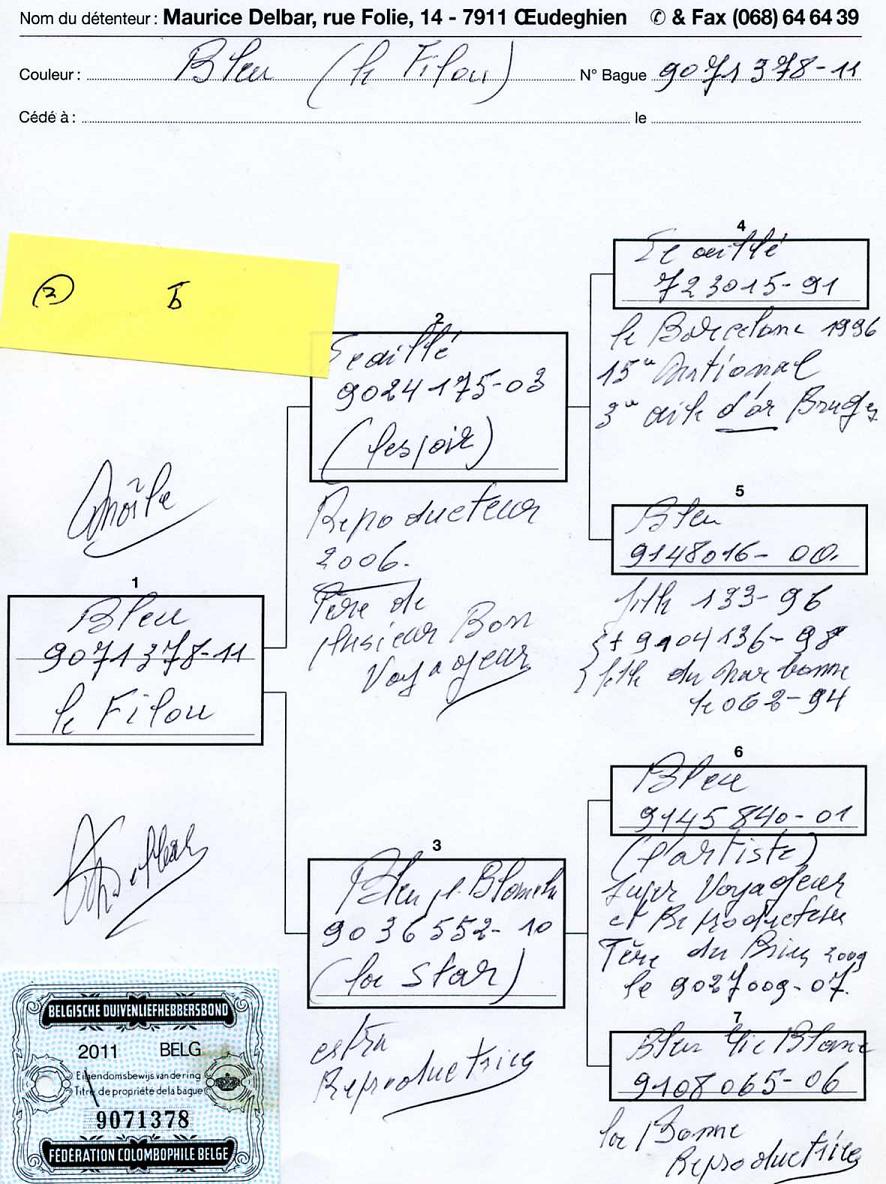 Nom du détenteur : Maurice Delbar, rue Folie, 14 - 7911 Œudeghien ✆ & Fax (068) 64 64 39
Couleur : Bleu (le Filou) N° Bague 9071378-11
Cédé à : le
② b
4
Ecaillé
723015-91
le Barcelone 1996
15e National
3e aile d'or Bruges
2
Ecaillé
9024175-03
(lespoir)
Reproducteur
2006.
Père de
plusieur Bon
Voyageur
5
Bleu
9148016-00.
fille 133-96
+ 9104136-98
fille du narbonne
le 062-94
Mâle
1
Bleu
9071378-11
le Filou
6
Bleu
9145840-01
(l'artiste)
super Voyageur
et Reproducteur
Père du Brive 2009
le 9027009-07.
3
Bleu Blanche
9036552-10
(la star)
extra
Reproductrice
7
Bleu Blanc
9108065-06
la Bonne
Reproductrice
Delbar
BELGISCHE DUIVENLIEFHEBBERSBOND
2011 BELG
Eigendomsbewijs van de ring
Titre de propriété de la bague
9071378
FÉDÉRATION COLOMBOPHILE BELGE